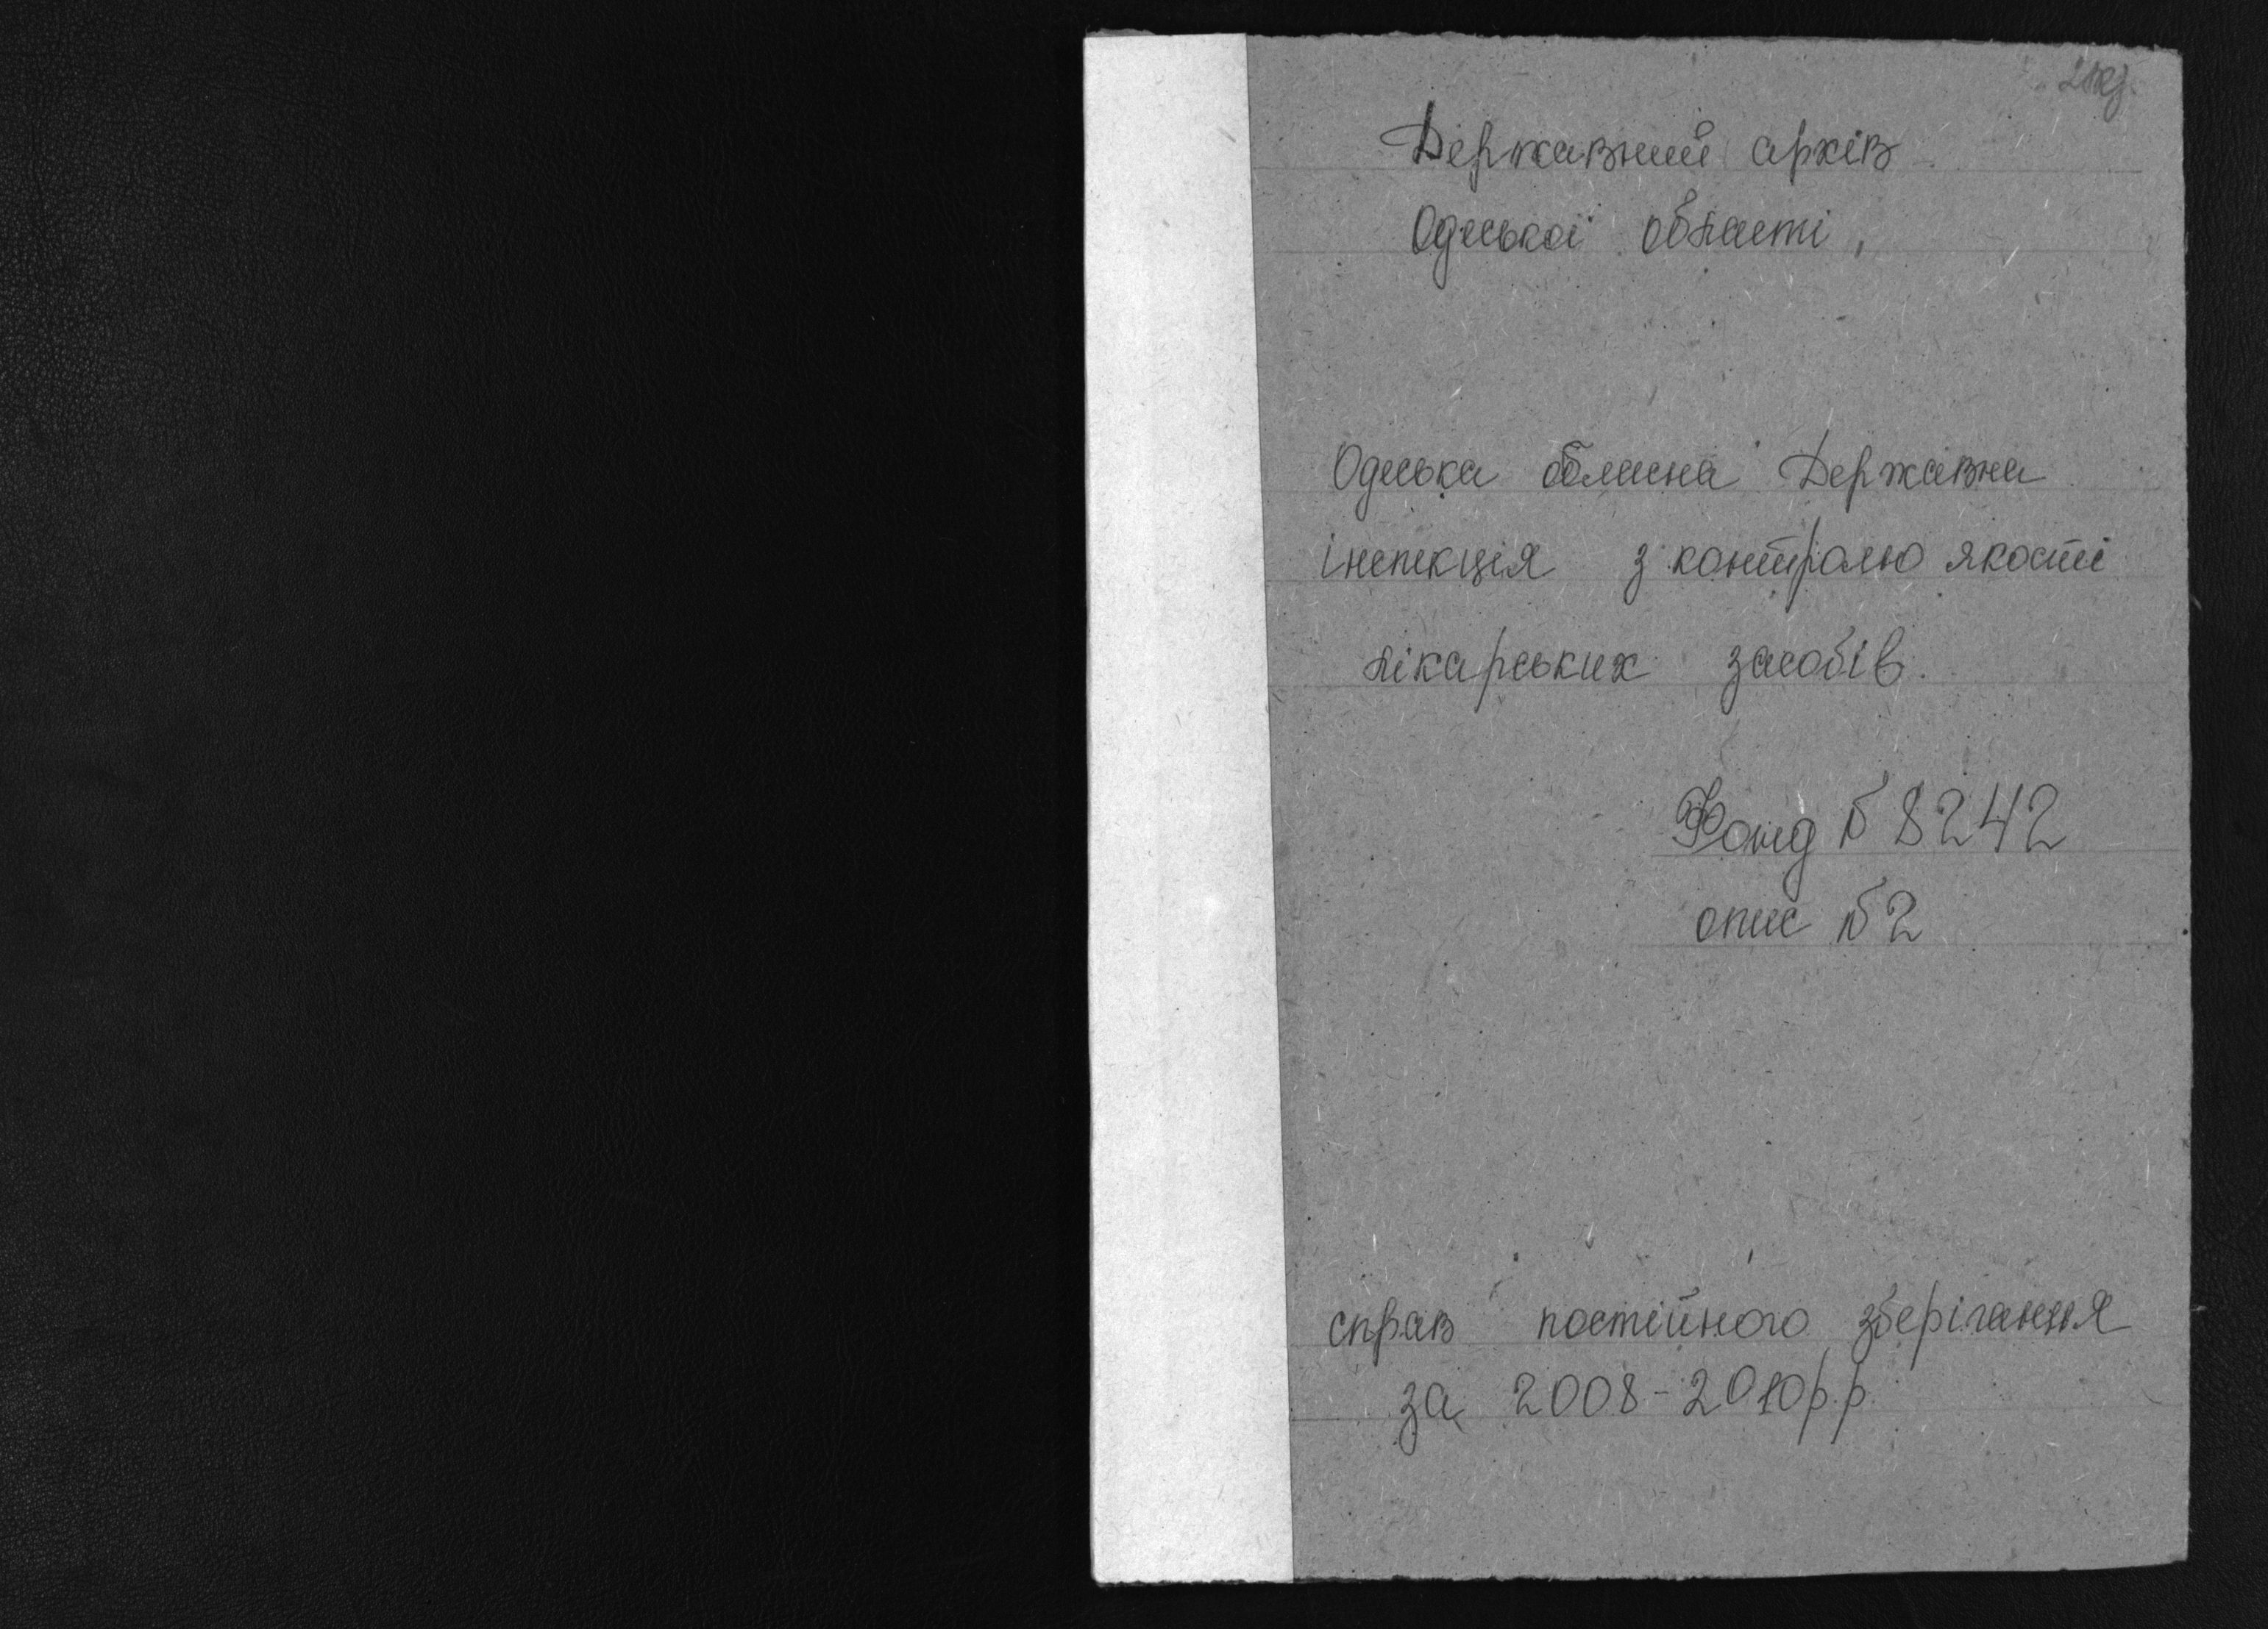 2 екз.
Державний архів
Одеської області,
Одеська обласна Державна
інспекція з контролю якості
лікарських засобів.
Фонд № 8242
опис № 2
справ постійного зберігання
за 2008-2010 р.р.